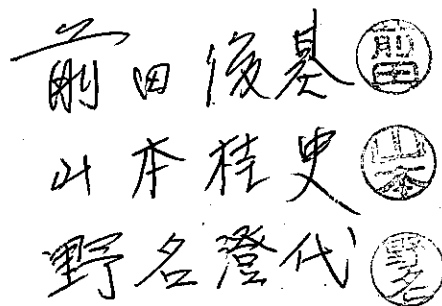 前田俊基 前田
山本桂史 山本
野名澄代 野名